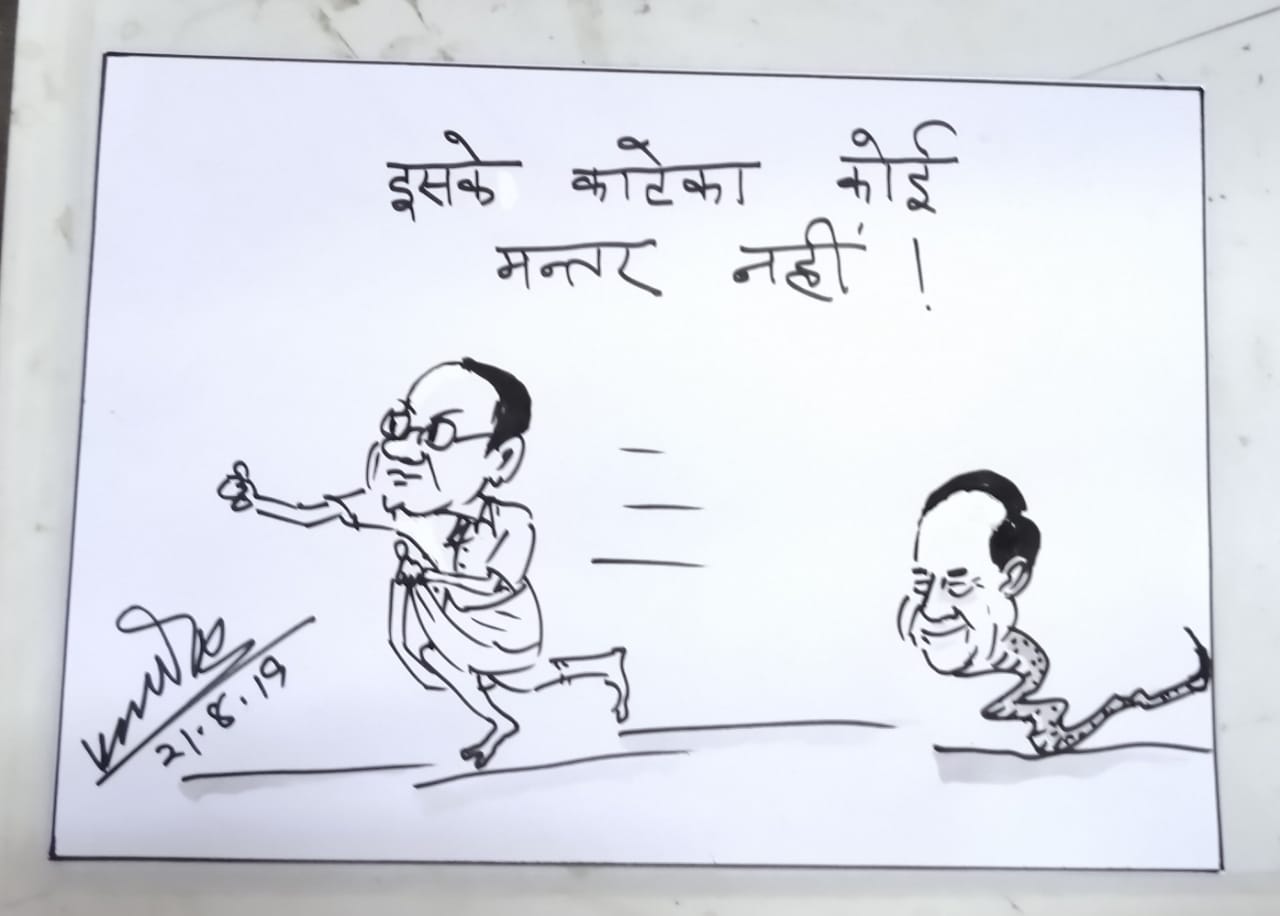 इसके काटेका कोई
मन्तर नहीं !
21.8.19